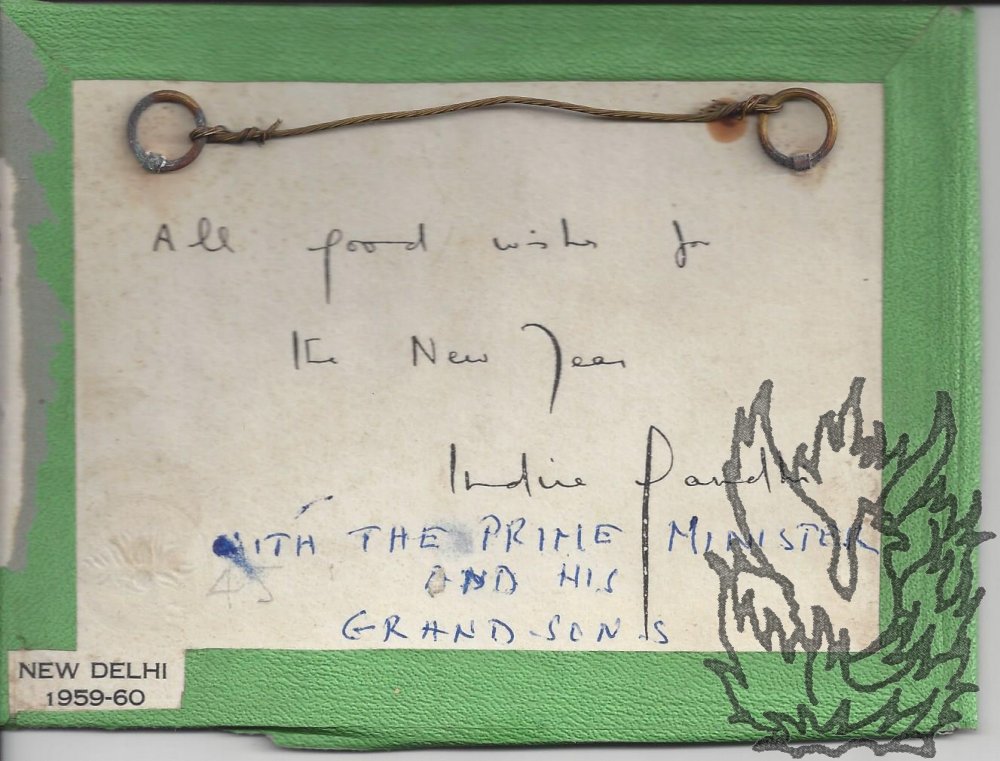 All good wishes for
the New Year
Indira Gandhi
WITH THE PRIME MINISTER
AND HIS
GRAND-SONS
45
NEW DELHI
1959-60